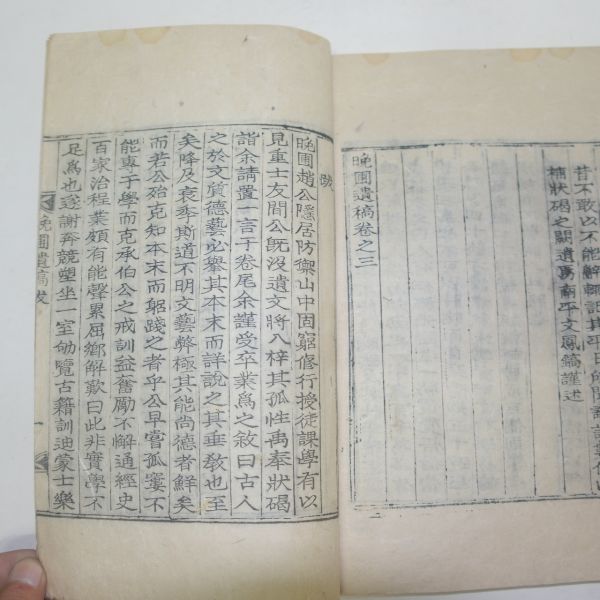 昔不敢以不能解辭記其平日所聞
補狀碣之闕遺焉南平文鳳鎬謹述
晩圃遺稿卷之三
跋
晩圃趙公隱居防禦山中固窮修行授徒課學有以
見重士友間公旣沒遺文將入梓其孤性禹奉狀碣
詣余請置一言于卷尾余謹受卒業爲之敘曰古人
之於文質德藝必擧其本末而詳說之其垂敎也至
矣降及衰季斯道不明文藝弊極其能尚德者鮮矣
而若公殆克知本末而躬踐之者乎公早嘗孤寠不
能專于學而克承伯公之戒訓益奮勵不懈通經史
百家治程業頗有能聲累屈鄕解歎曰此非實學不
足爲也遂謝奔競塑坐一室劬覽古籍訓迪蒙士樂
晩圃遺稿 跋
一